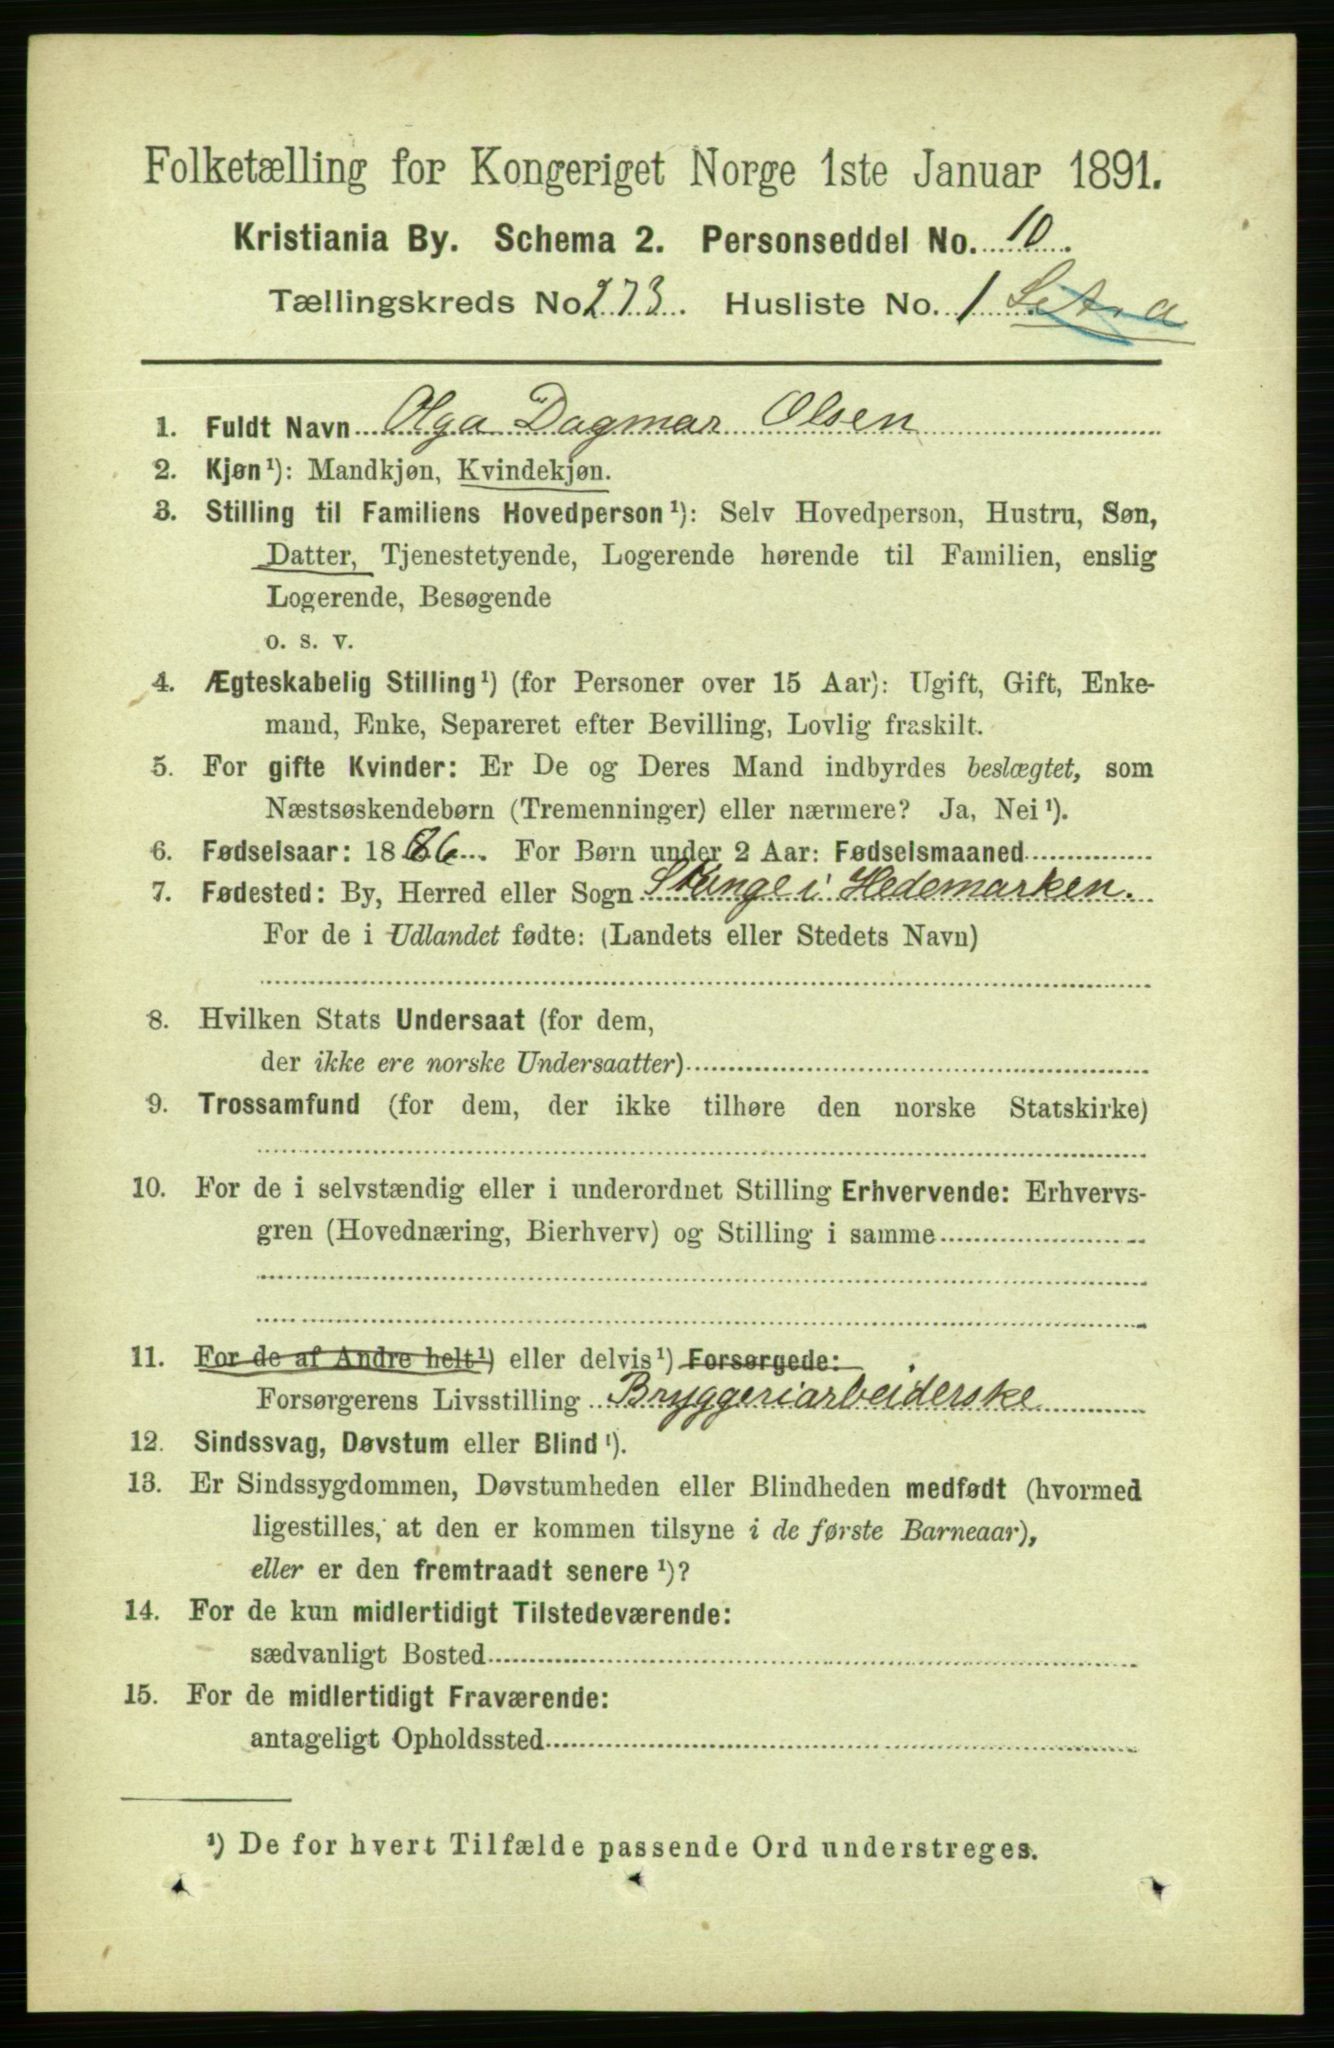 Folketælling for Kongeriget Norge 1ste Januar 1891.
Kristiania By. Schema 2. Personseddel No. 10.
Tællingskreds No. 273. Husliste No. 1 Litra a
1. Fuldt Navn Olga Dagmar Olsen
2. Kjøn¹): Mandkjøn, Kvindekjøn.
3. Stilling til Familiens Hovedperson¹): Selv Hovedperson, Hustru, Søn,
Datter, Tjenestetyende, Logerende hørende til Familien, enslig
Logerende, Besøgende
o. s. v.
4. Ægteskabelig Stilling¹) (for Personer over 15 Aar): Ugift, Gift, Enke-
mand, Enke, Separeret efter Bevilling, Lovlig fraskilt.
5. For gifte Kvinder: Er De og Deres Mand indbyrdes beslægtet, som
Næstsøskendebørn (Tremenninger) eller nærmere? Ja, Nei¹).
6. Fødselsaar: 1886. For Børn under 2 Aar: Fødselsmaaned
7. Fødested: By, Herred eller Sogn Stange i Hedemarken.
For de i Udlandet fødte: (Landets eller Stedets Navn)
8. Hvilken Stats Undersaat (for dem,
der ikke ere norske Undersaatter)
9. Trossamfund (for dem, der ikke tilhøre den norske Statskirke)
10. For de i selvstændig eller i underordnet Stilling Erhvervende: Erhvervs-
gren (Hovednæring, Bierhverv) og Stilling i samme
11. For de af Andre helt¹) eller delvis¹) Forsørgede:
Forsørgerens Livsstilling Bryggeriarbeiderske
12. Sindssvag, Døvstum eller Blind¹).
13. Er Sindssygdommen, Døvstumheden eller Blindheden medfødt (hvormed
ligestilles, at den er kommen tilsyne i de første Barneaar),
eller er den fremtraadt senere¹)?
14. For de kun midlertidigt Tilstedeværende:
sædvanligt Bosted
15. For de midlertidigt Fraværende:
antageligt Opholdssted
¹) De for hvert Tilfælde passende Ord understreges.